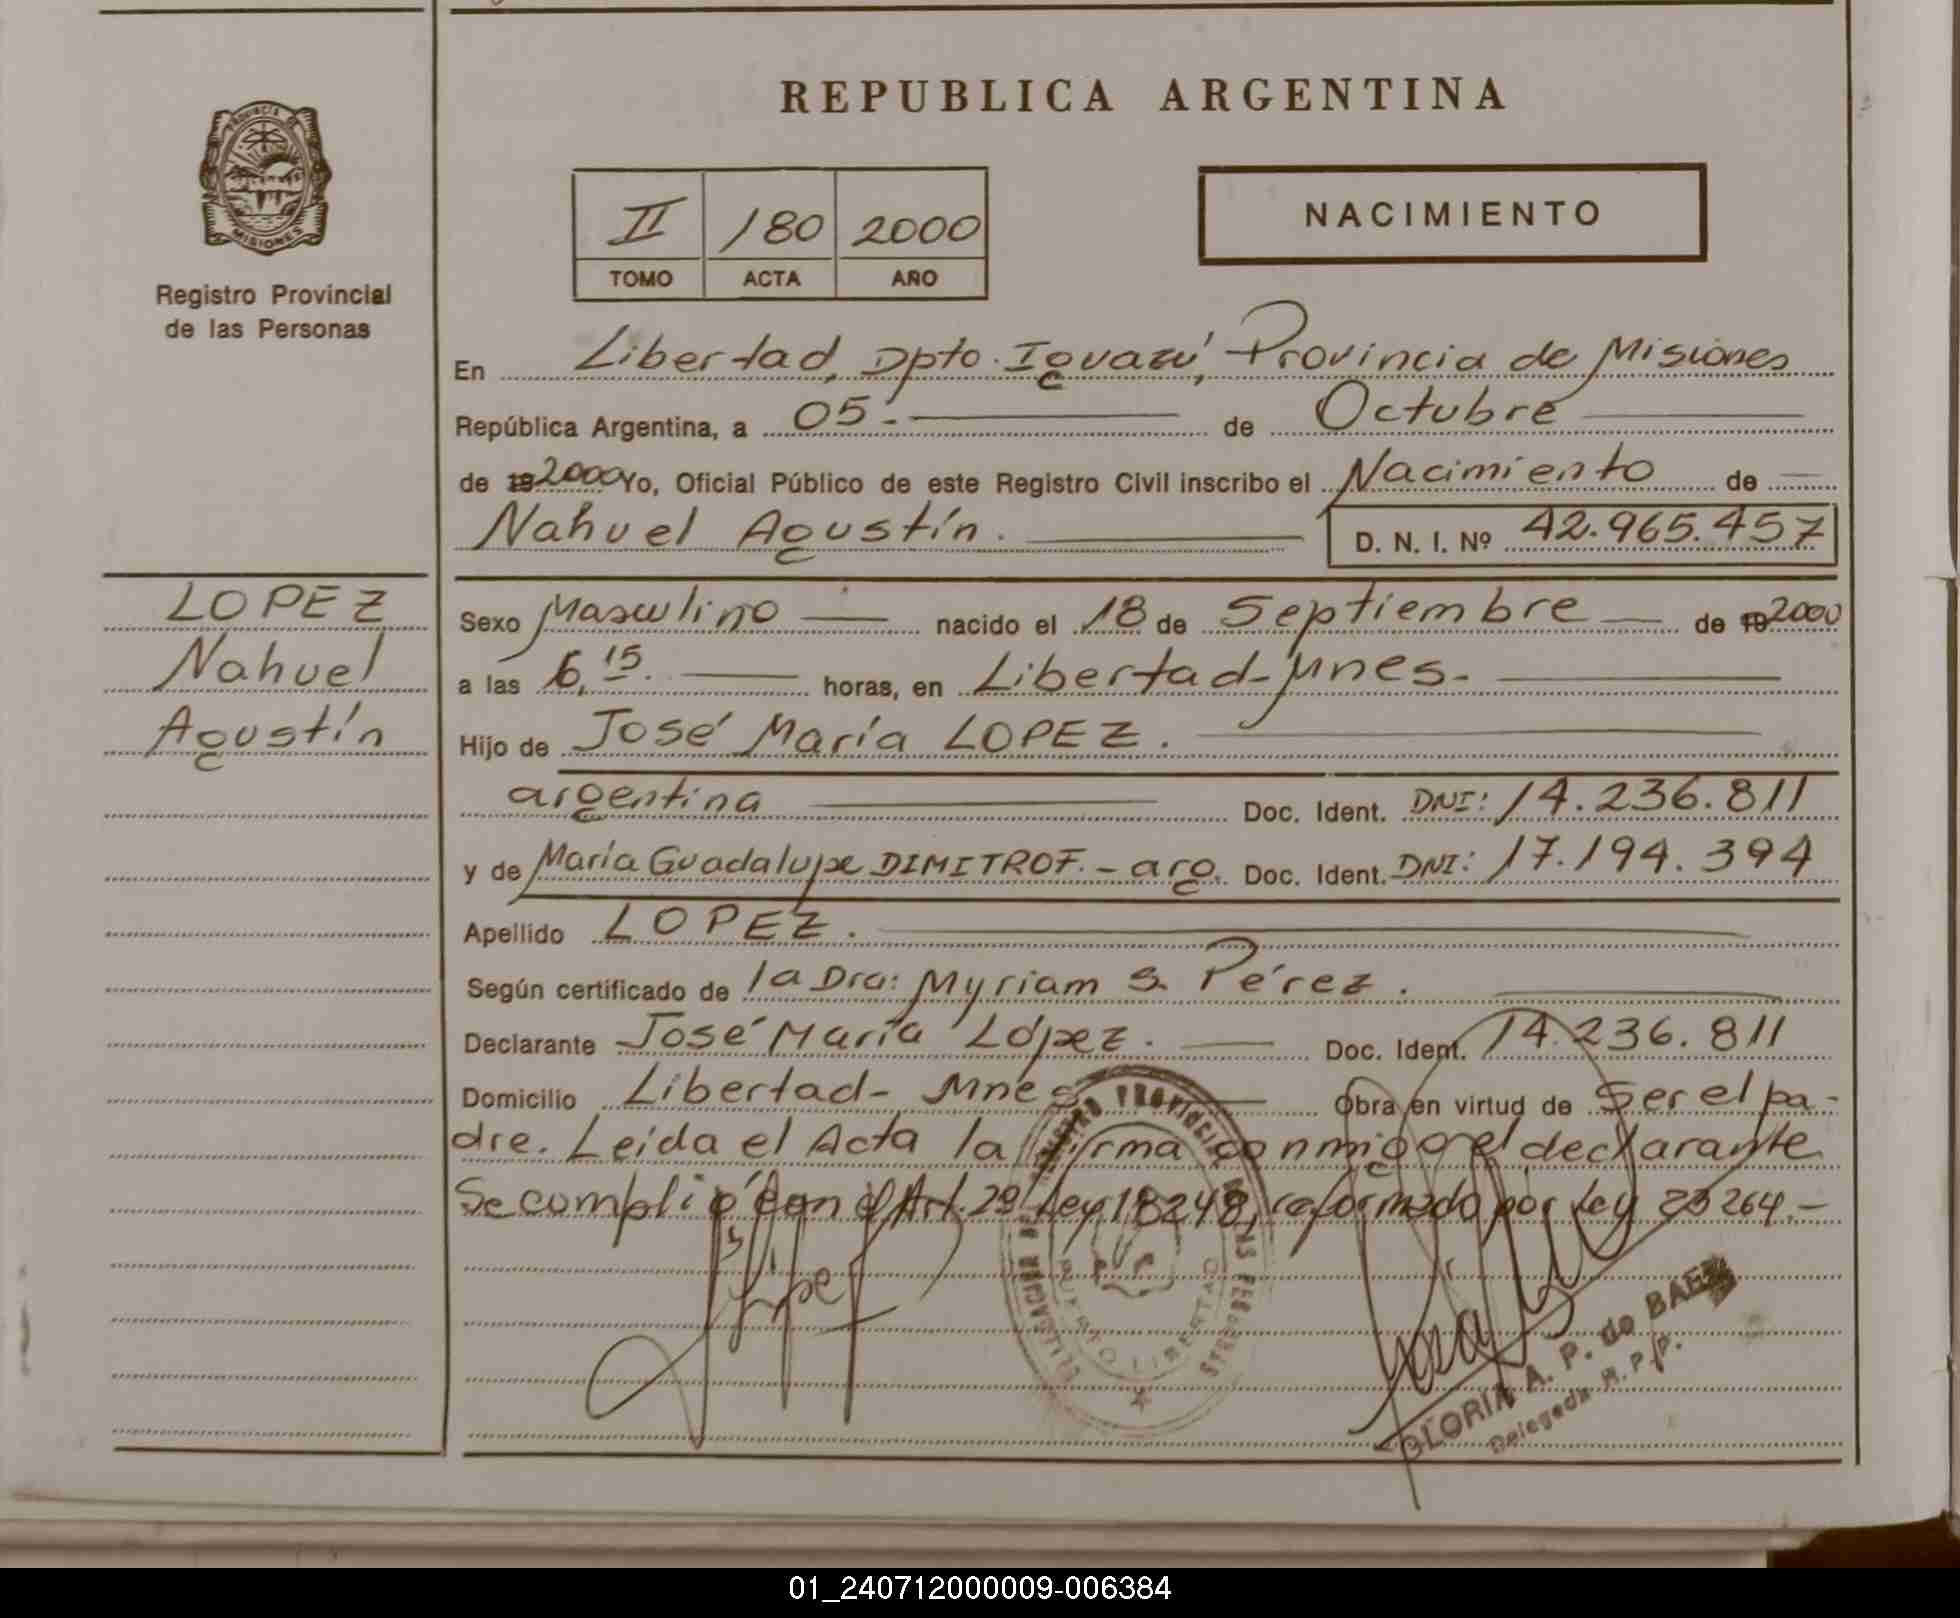 REPUBLICA ARGENTINA
PROVINCIA DE
MISIONES
Registro Provincial
de las Personas
II 180 2000
TOMO ACTA AÑO
NACIMIENTO
En Libertad, Dpto. Iguazú, Provincia de Misiones
República Argentina, a 05.- de Octubre
de 19 2000 Yo, Oficial Público de este Registro Civil inscribo el Nacimiento de
Nahuel Agustín. D. N. I. Nº 42.965.457
LOPEZ
Nahuel
Agustín
Sexo Masculino nacido el 18 de Septiembre de 19 2000
a las 6,15. horas, en Libertad-Mnes.-
Hijo de José María LOPEZ.
argentina Doc. Ident. DNI: 14.236.811
y de María Guadalupe DIMITROF.- arg. Doc. Ident. DNI: 17.194.394
Apellido LOPEZ.
Según certificado de la Dra: Myriam S. Pérez.
Declarante José María López. Doc. Ident. 14.236.811
Domicilio Libertad- Mnes Obra en virtud de Ser el pa-
dre. Leída el Acta la firma conmigo el declarante
Se cumplió con el Art. 29 Ley 18248, reformado por Ley 23264.-
PUERTO LIBERTAD
GLORIA A. P. de BAEZ
Delegada R. P. P.
01_240712000009-006384